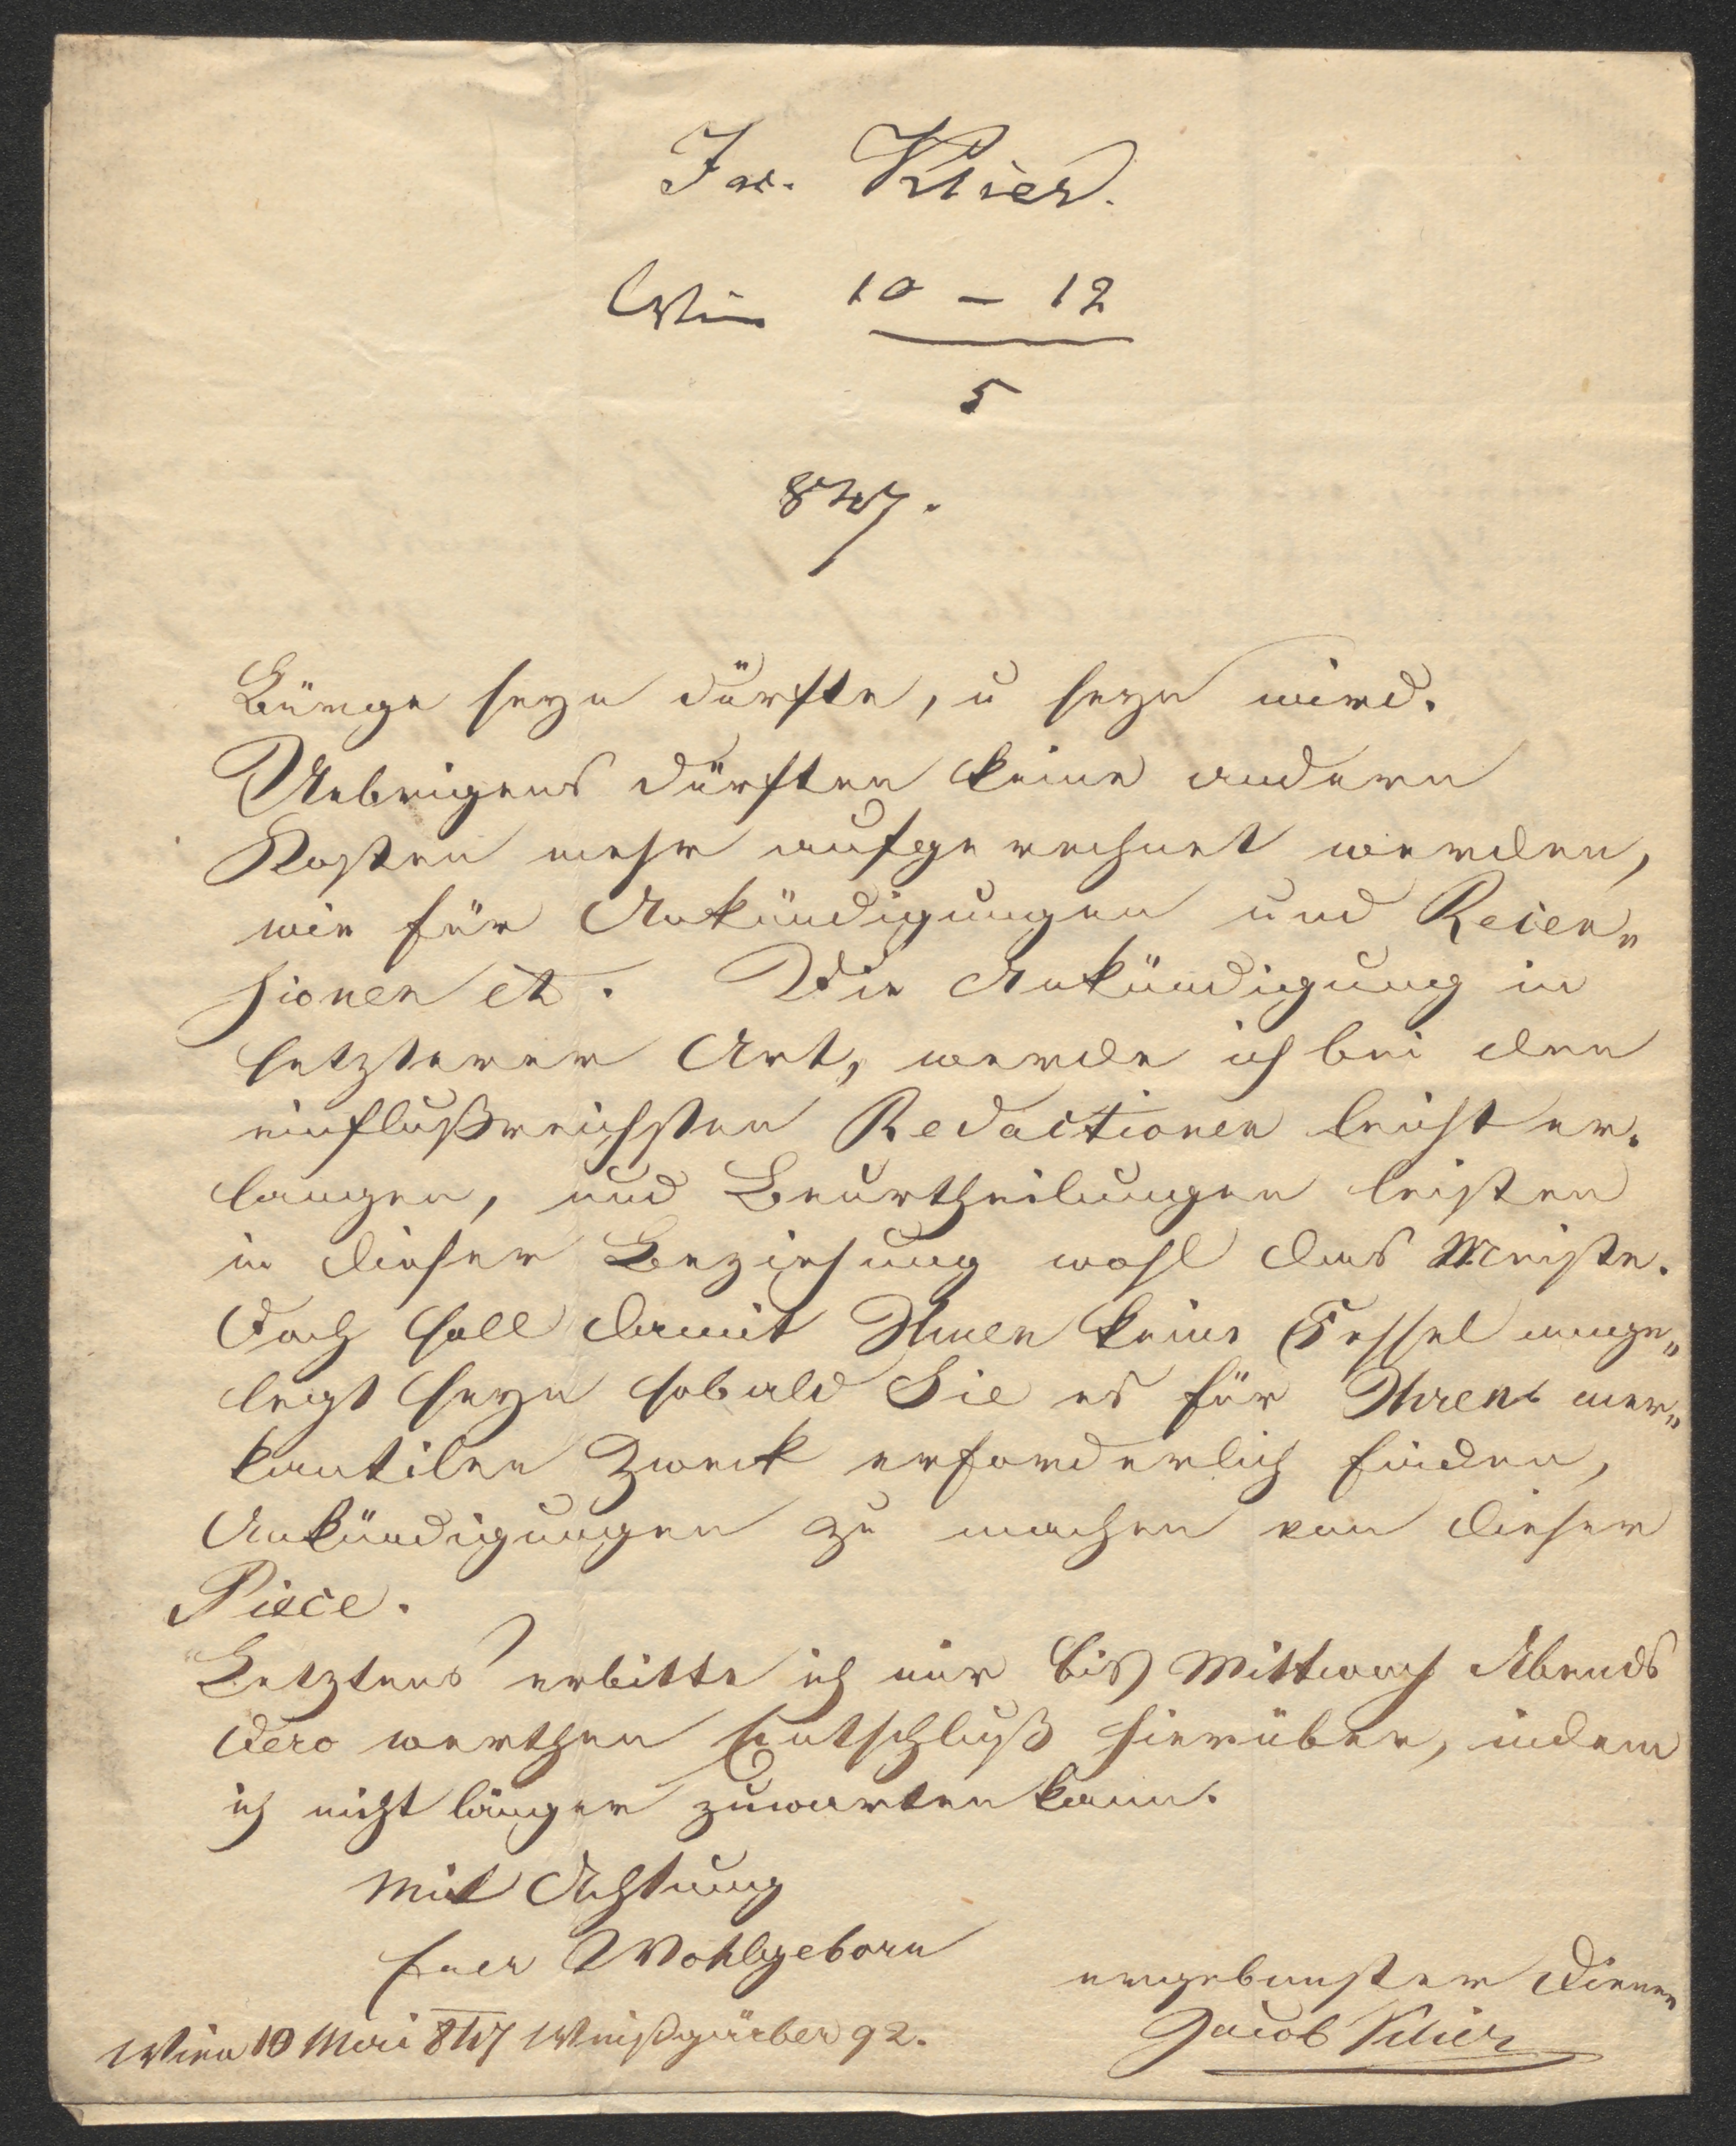 Jac. Klier.
Wien 10 – 12
5
847.
Bürge seyn dürfte, u seyn wird.
Uebrigens dürften keine andern
Kosten mehr aufgerechnet werden,
wie für Ankündigungen und Recen„
sionen etc. Die Ankündigung in
letzterer Art, werde ich bei den
einflußreichsten Redactionen leicht er„
langen, und Beurtheilungen leisten
in dieser Beziehung wohl das Meiste.
Doch soll damit Ihnen keine Fessel ange„
legt seyn sobald Sie es für Ihren mer„
kantilen Zweck erforderlich finden,
Ankündigungen zu machen von dieser
Piece.
Letztens erbitte ich mir bis Mittwoch Abends
dero werthen Entschluß hierüber, indem
ich nicht länger zuwarten kann.
Mit Achtung
Euer Wohlgeborn
ergebenster Diener
Jacob Klier
Wien 10 Mai 847 Weißgärber 92.